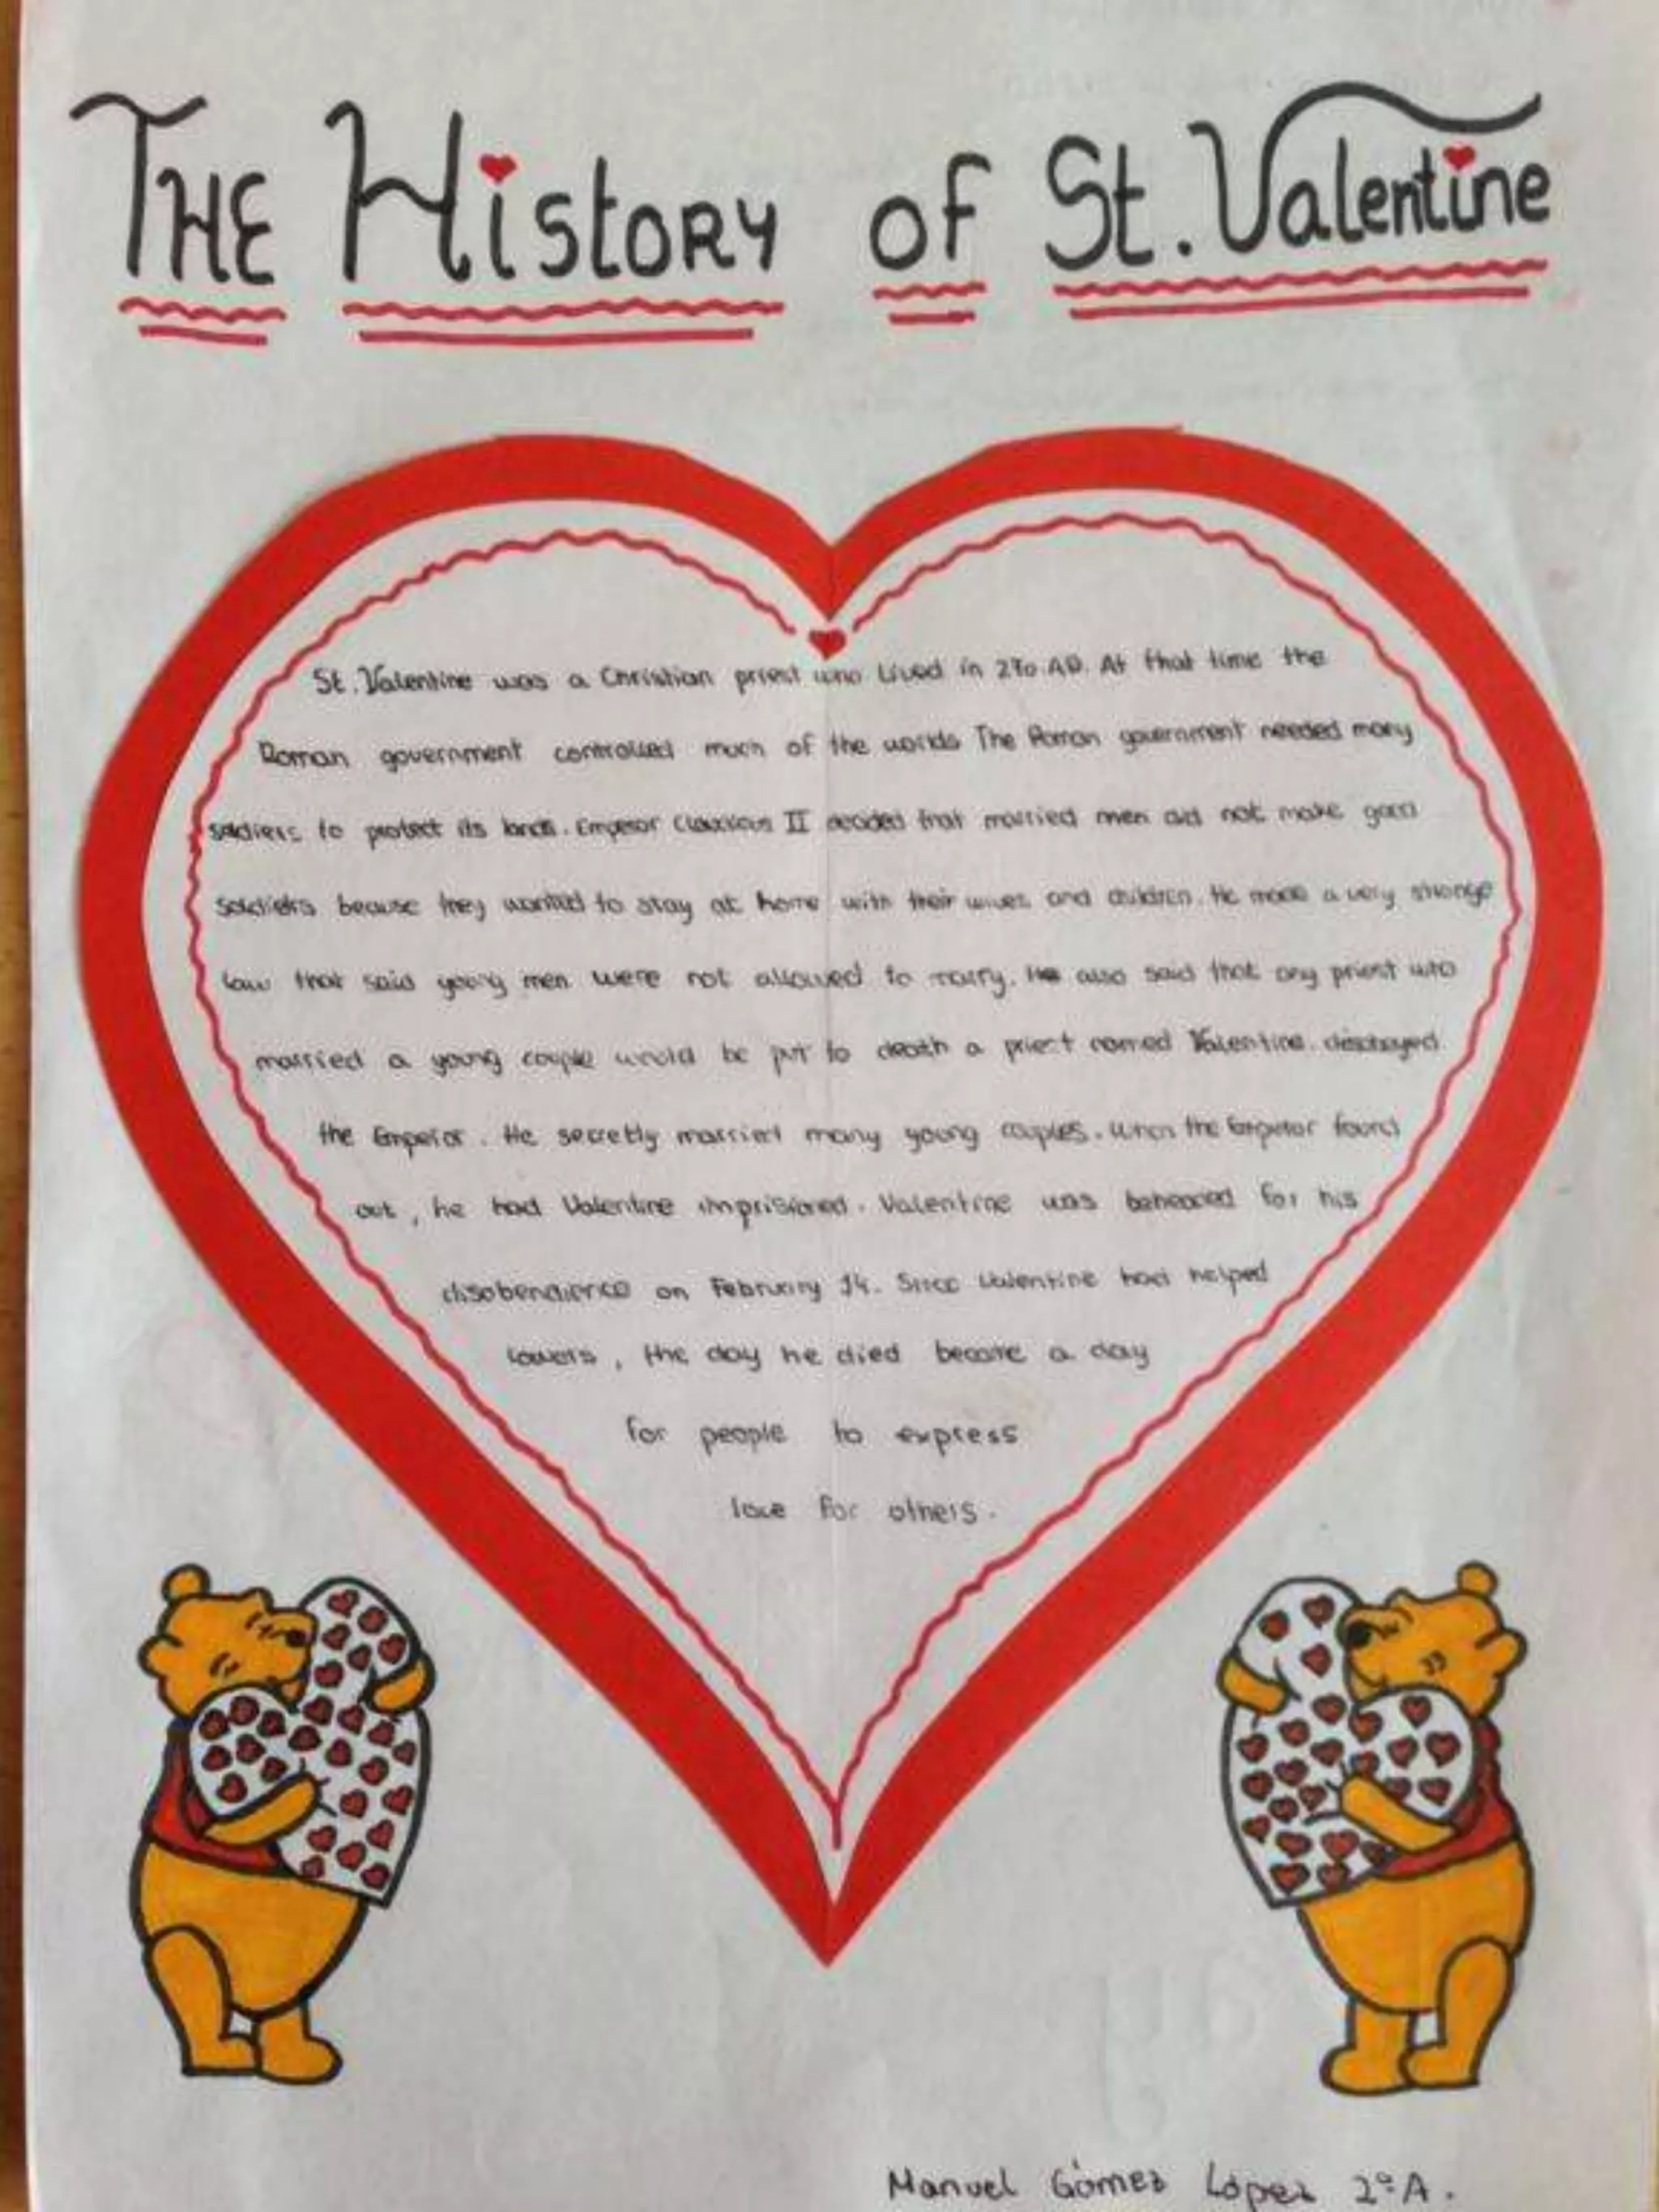 THE History of St. Valentine
St. Valentine was a Christian priest who lived in 270 AD. At that time the
Roman government controlled much of the worlds The Roman government needed many
soldiers to protect its lands. Emperor Claudius II decided that married men did not make good
soldiers because they wanted to stay at home with their wives and children. He made a very strange
law that said young men were not allowed to marry. He also said that any priest who
married a young couple would be put to death a priest named Valentine. disobeyed
the Emperor. He secretly married many young couples. When the Emperor found
out, he had Valentine imprisioned. Valentine was beheaded for his
disobendience on February 14. Since Valentine had helped
lowers, the day he died became a day
for people to express
love for others.
Manuel Gómez López 2ºA.